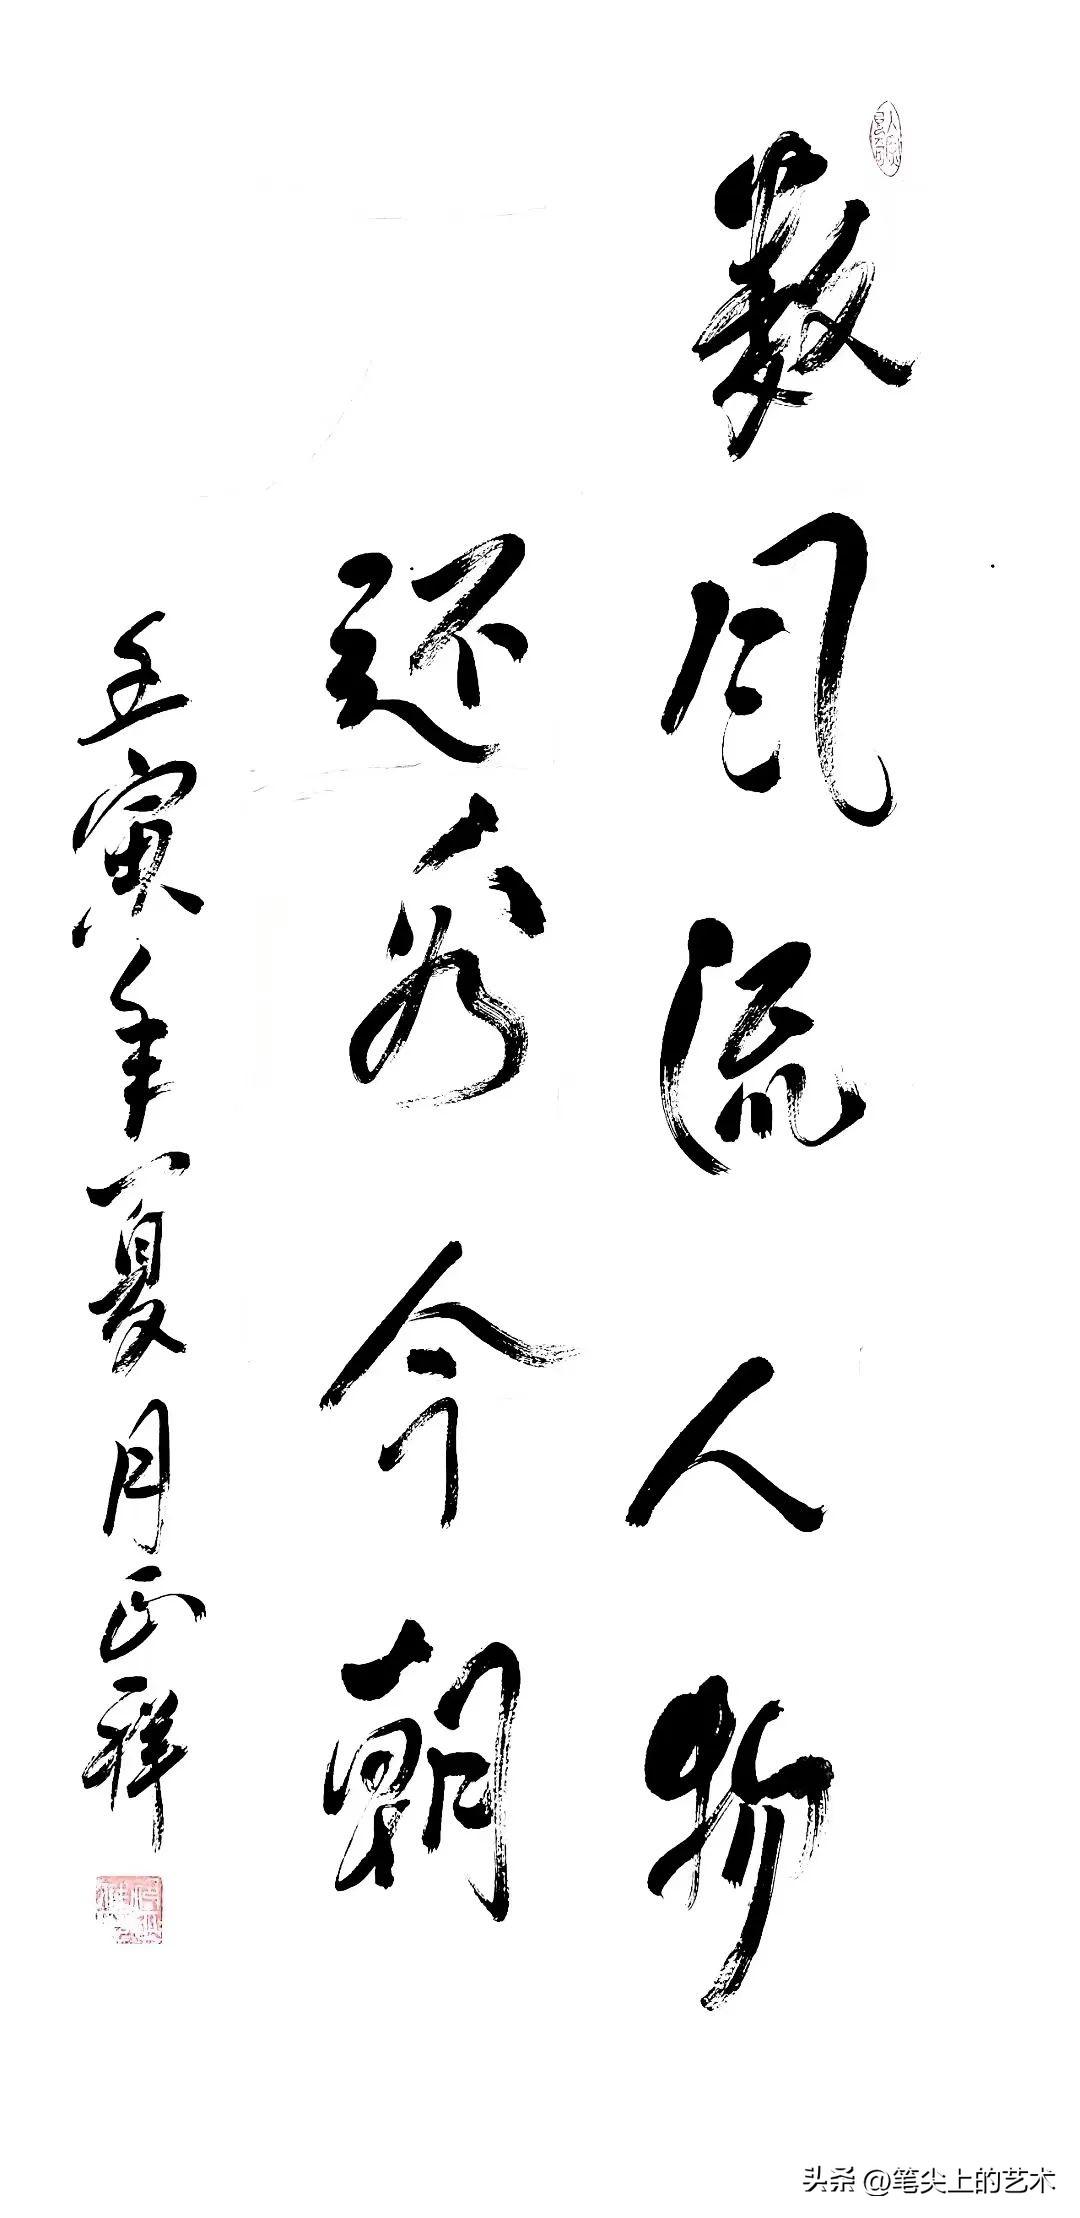 数风流人物
还看今朝
壬寅年夏月正祥
头条 @笔尖上的艺术